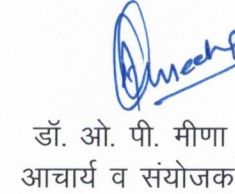 डॉ. ओ. पी. मीणा
आचार्य व संयोजक